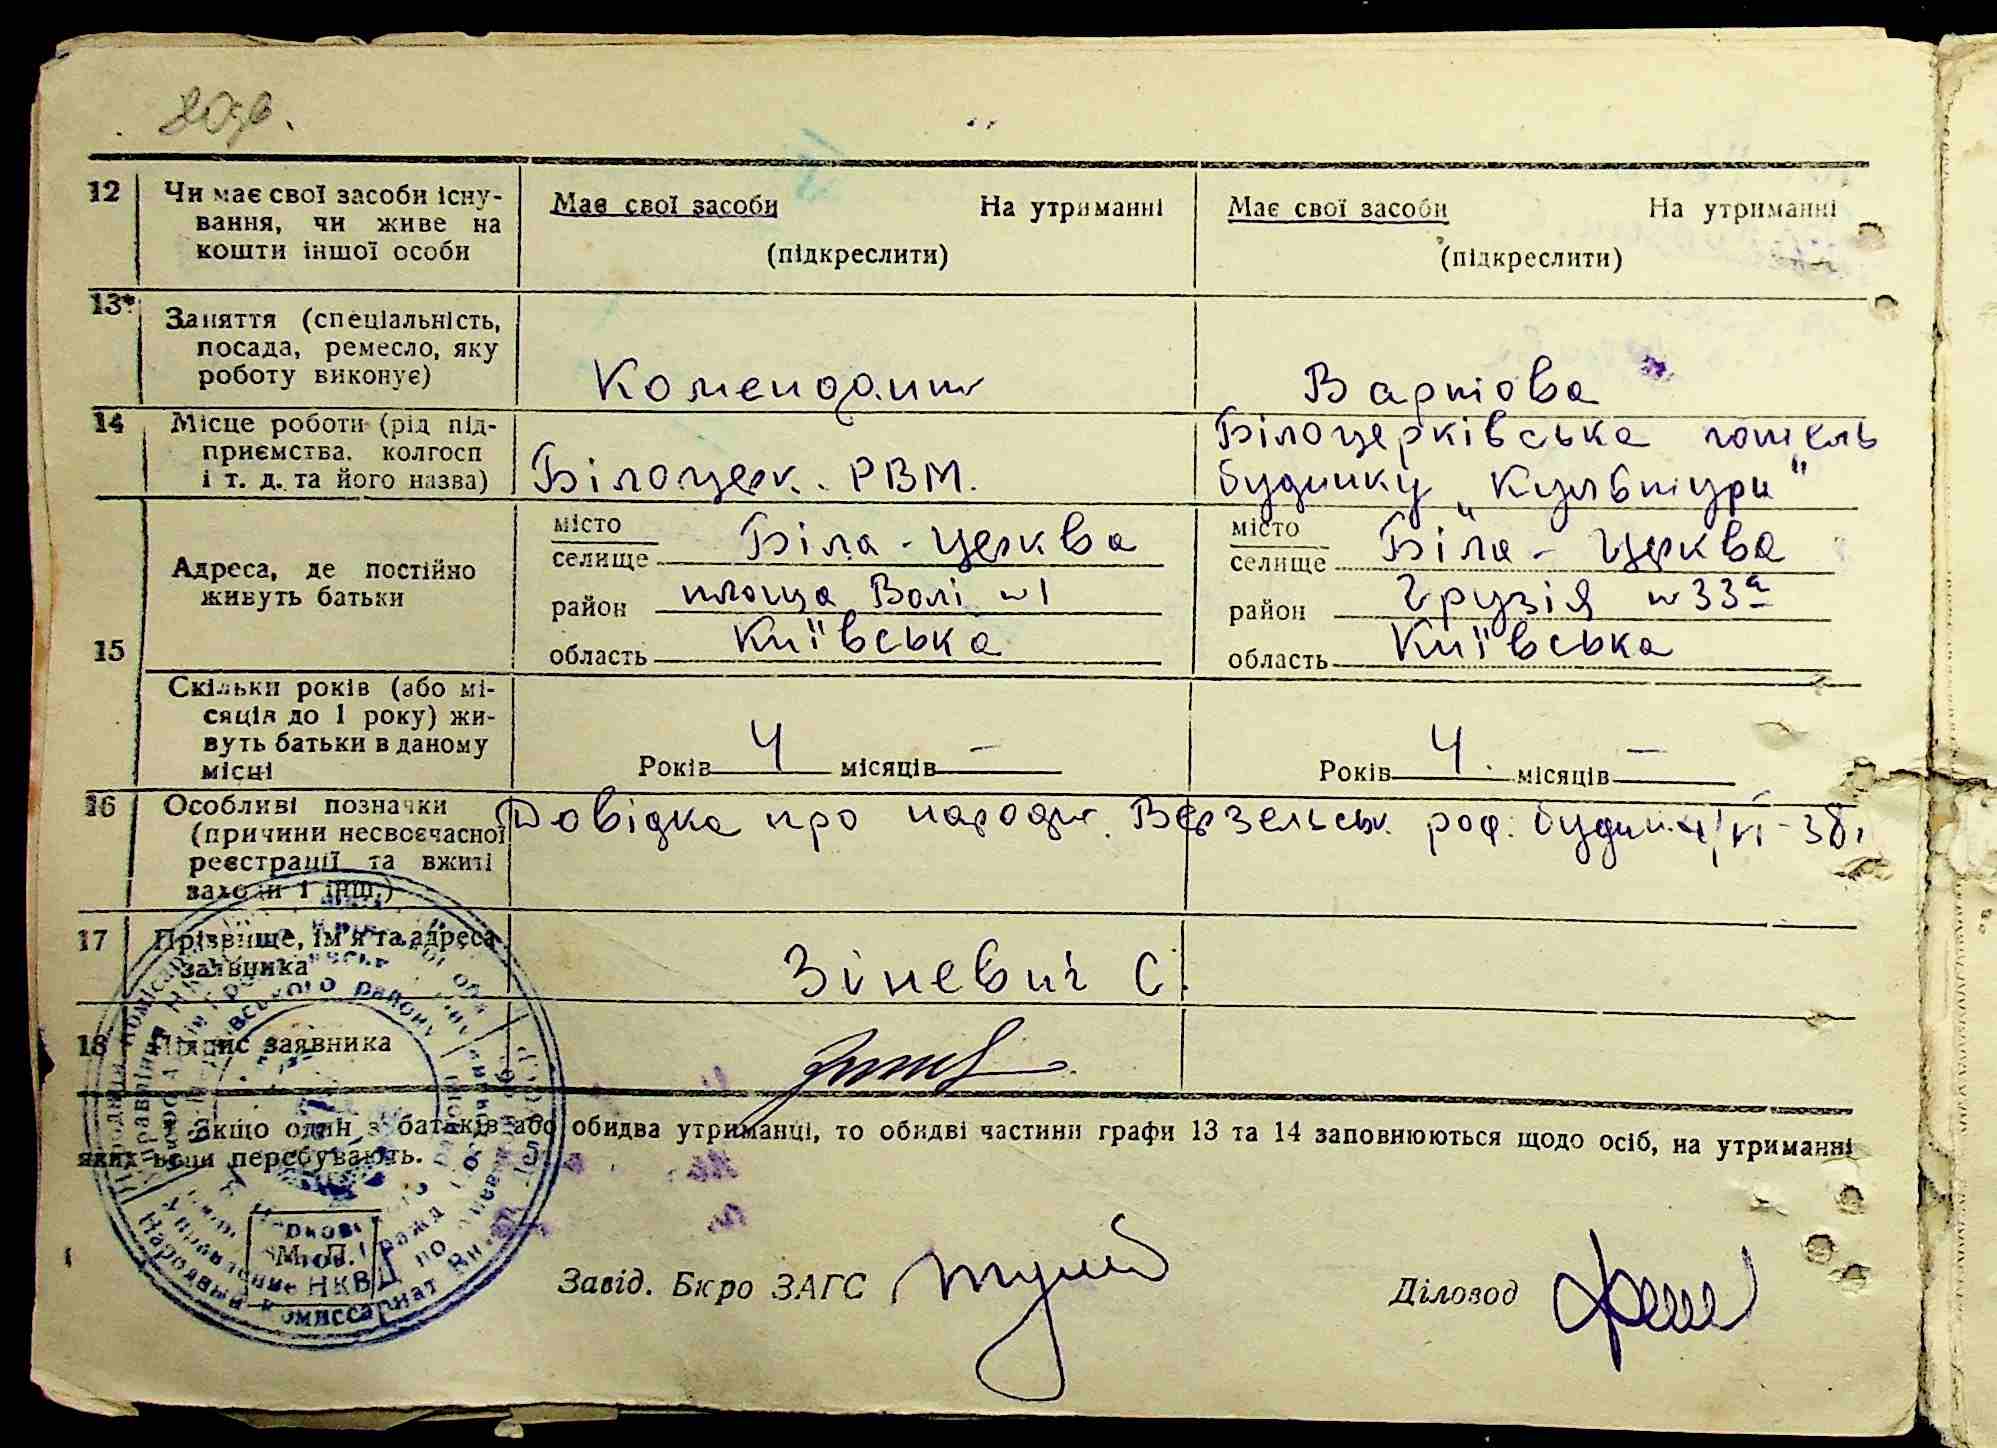 80
12 Чи має свої засоби існу-
вання, чи живе на
кошти іншої особи
Має свої засоби На утриманні
(підкреслити)
Має свої засоби На утриманні
(підкреслити)
13* Заняття (спеціальність,
посада, ремесло, яку
роботу виконує)
Комендант
Вартова
14 Місце роботи (рід під-
приємства, колгосп
і т. д. та його назва)
Білоцерк. РВМ.
Білоцерківська готель
будинку „Культури"
15 Адреса, де постійно
живуть батьки
місто
селище Біла-Церква
район площа Волі №1
область Київська
місто
селище Біла-Церква
район Грузія №33а
область Київська
Скільки років (або мі-
сяців до 1 року) жи-
вуть батьки в даному
місці
Років 4 місяців —
Років 4. місяців —
16 Особливі позначки
(причини несвоєчасної
реєстрації та вжиті
заходи і інш.)
Довідка про народж. Верзельськ. род. будин. 4/VI-38.
17 Прізвище, ім'я та адреса
заявника
Зіневич С.
18 Підпис заявника
Якщо один з батьків або обидва утриманці, то обидві частини графи 13 та 14 заповнюються щодо осіб, на утриманні
яких вони перебувають.
М. П.
Завід. Бюро ЗАГС
Діловод
Управление НКВД по
Народный комиссариат Вн.